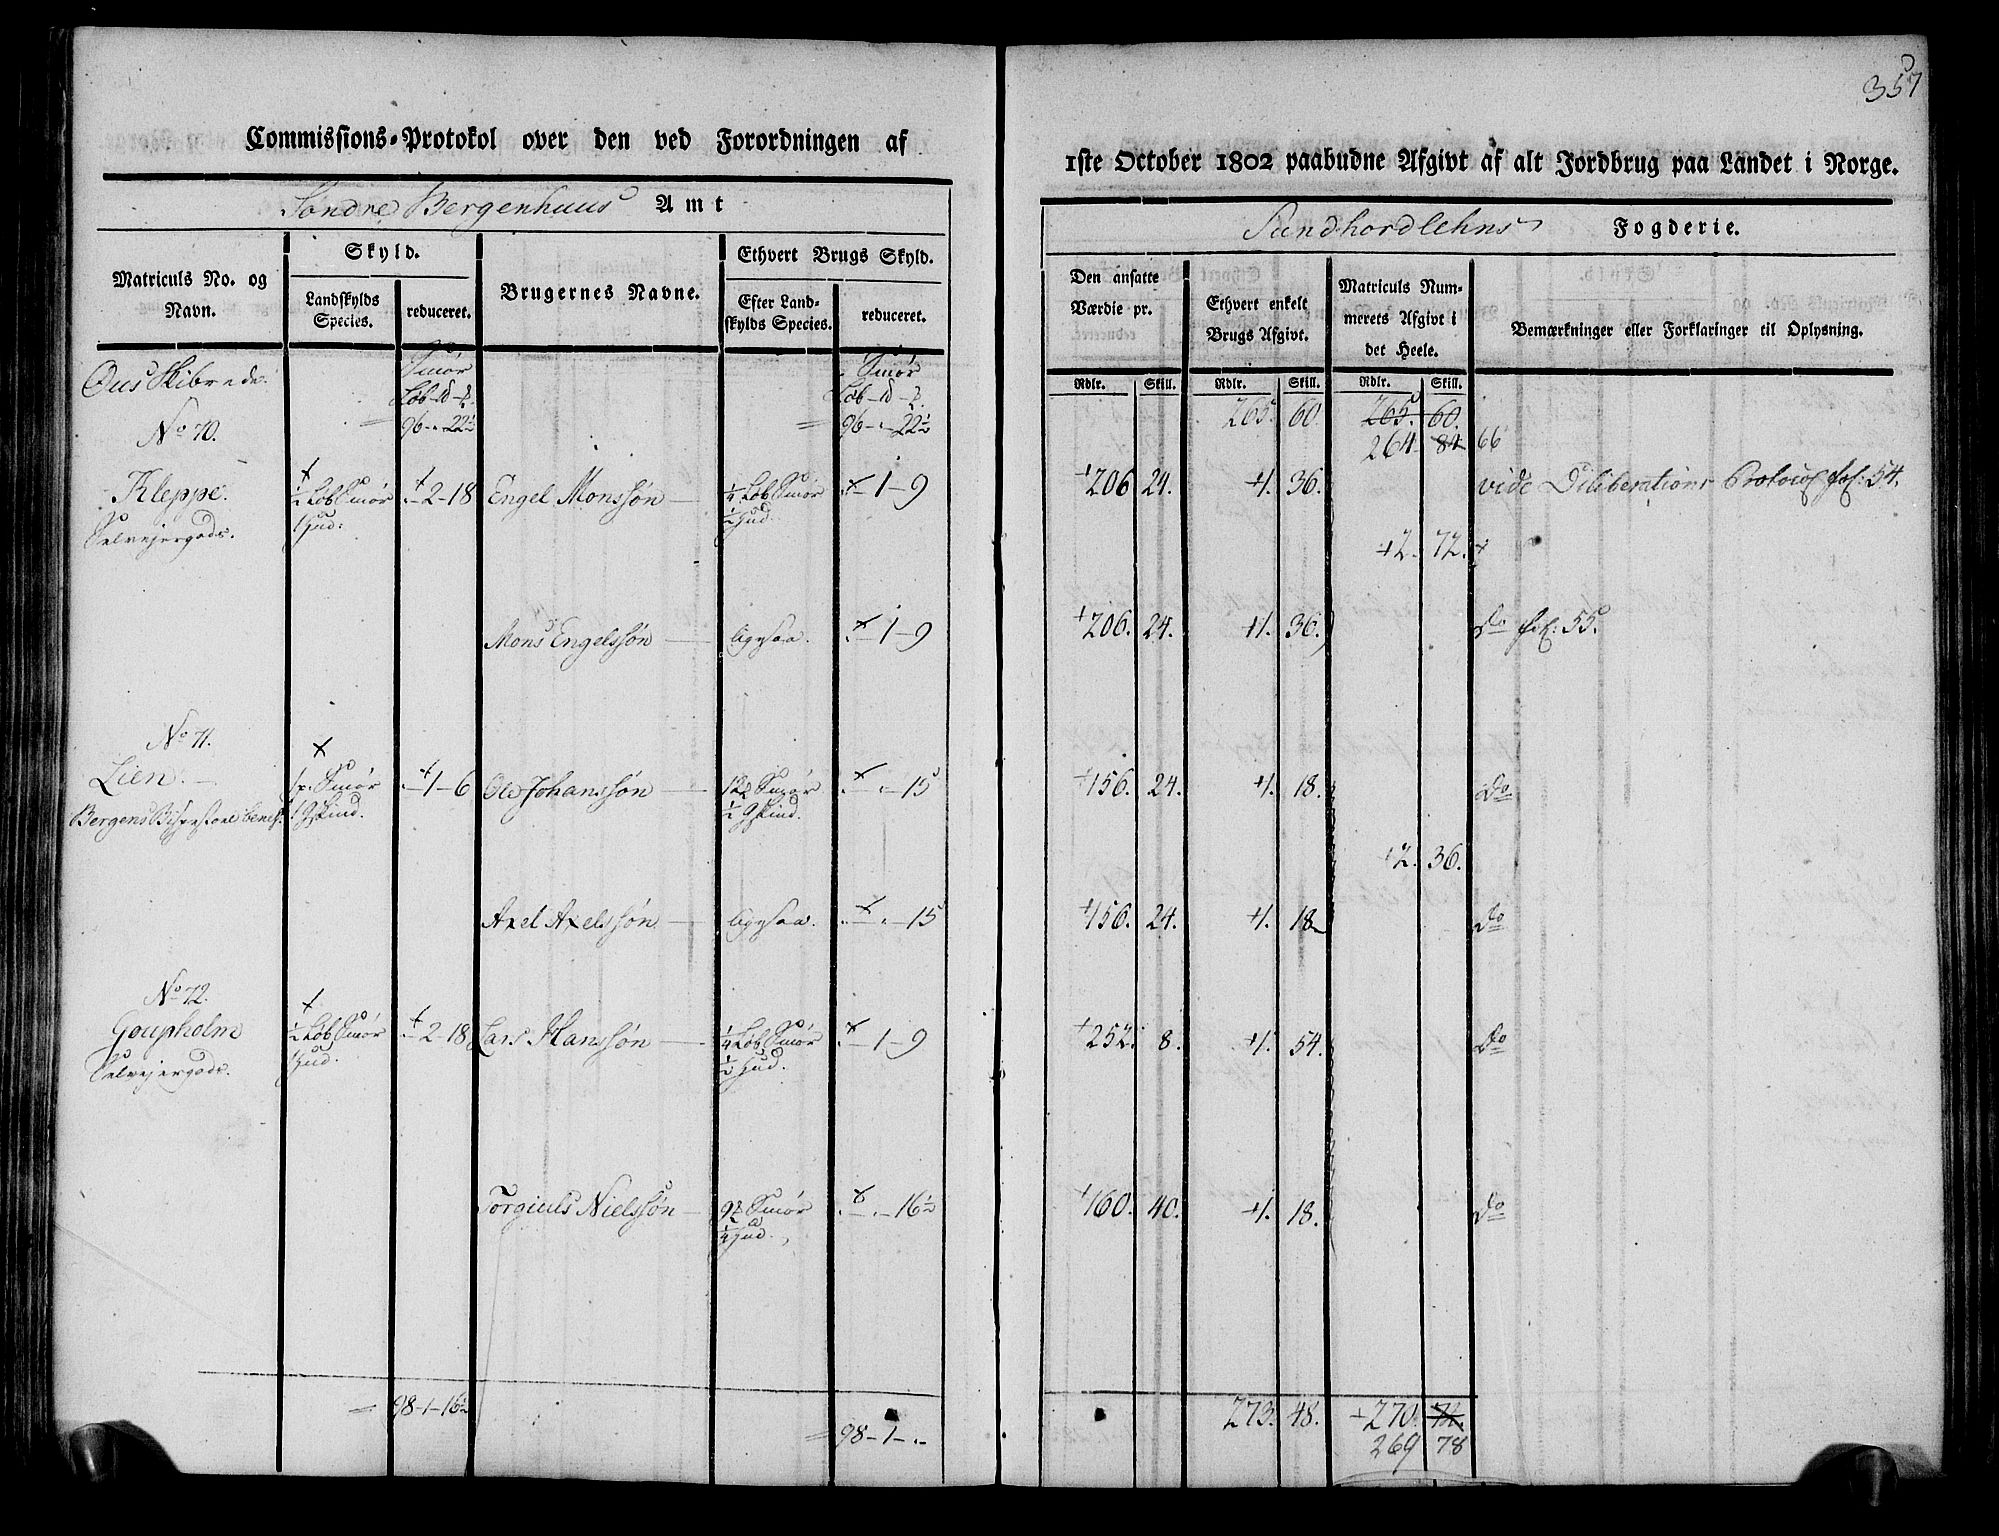 357
Commissions-Protokol over den ved Forordningen af
1ste October 1802 paabudne Afgivt af alt Jordbrug paa Landet i Norge.
Søndre Bergenhuus Amt
Sundhordlehns Fogderie.
Matriculs No. og Navn.
Skyld.
Landskylds Species.
reduceret.
Brugernes Navne.
Ethvert Brugs Skyld.
Efter Landskylds Species.
reduceret.
Den ansatte Værdie pr.
Ethvert enkelt Brugs Afgivt.
Matriculs Nummerets Afgivt i det Heele.
Bemærkninger eller Forklaringer til Oplysning.
Rdlr. Skill. Rdlr. Skill. Rdlr. Skill.
Ous Skibrede.
Smør Smør
Løb Løb
96 - " - 22½ 96 - " - 22½ 265. 60. 265. 60.
264. 84 66
No 70.
Kleppe. ½ Løb Smør - 2 - 18 Engel Monssøn ¼ Løb Smør - 1 - 9 206 24. 1. 36. vide Deliberations Protocol fol: 54.
Selvejergods. 1 Hud: ½ Hud.
2. 72.
Mons Engelssøn ligesaa. - 1 - 9 206. 24. 1. 36. do fol: 55.
No 71.
Lien. Smør - 1 - 6 Ole Johanssøn 12 Smør - " - 15 156. 24. 1. 18. Do
Bergens Bispestoel benef. 1 Gskind. ½ Gskind.
2. 36.
Axel Axelssøn ligesaa. - " - 15 156. 24. 1. 18 do
No 72.
½ Løb Smør - 2 - 18 Lars Hanssøn ¼ Løb Smør - 1 - 9 252. 8. 1. 54. Do
Selvejergods. 1 Hud ½ Hud.
Nielssøn 9 Smør - " - 16½ 160. 40. 1. 18. do
¼ Hud.
98 - 1 - 16½ 273. 48. 270. 72.
98 - 1 - " 269 78